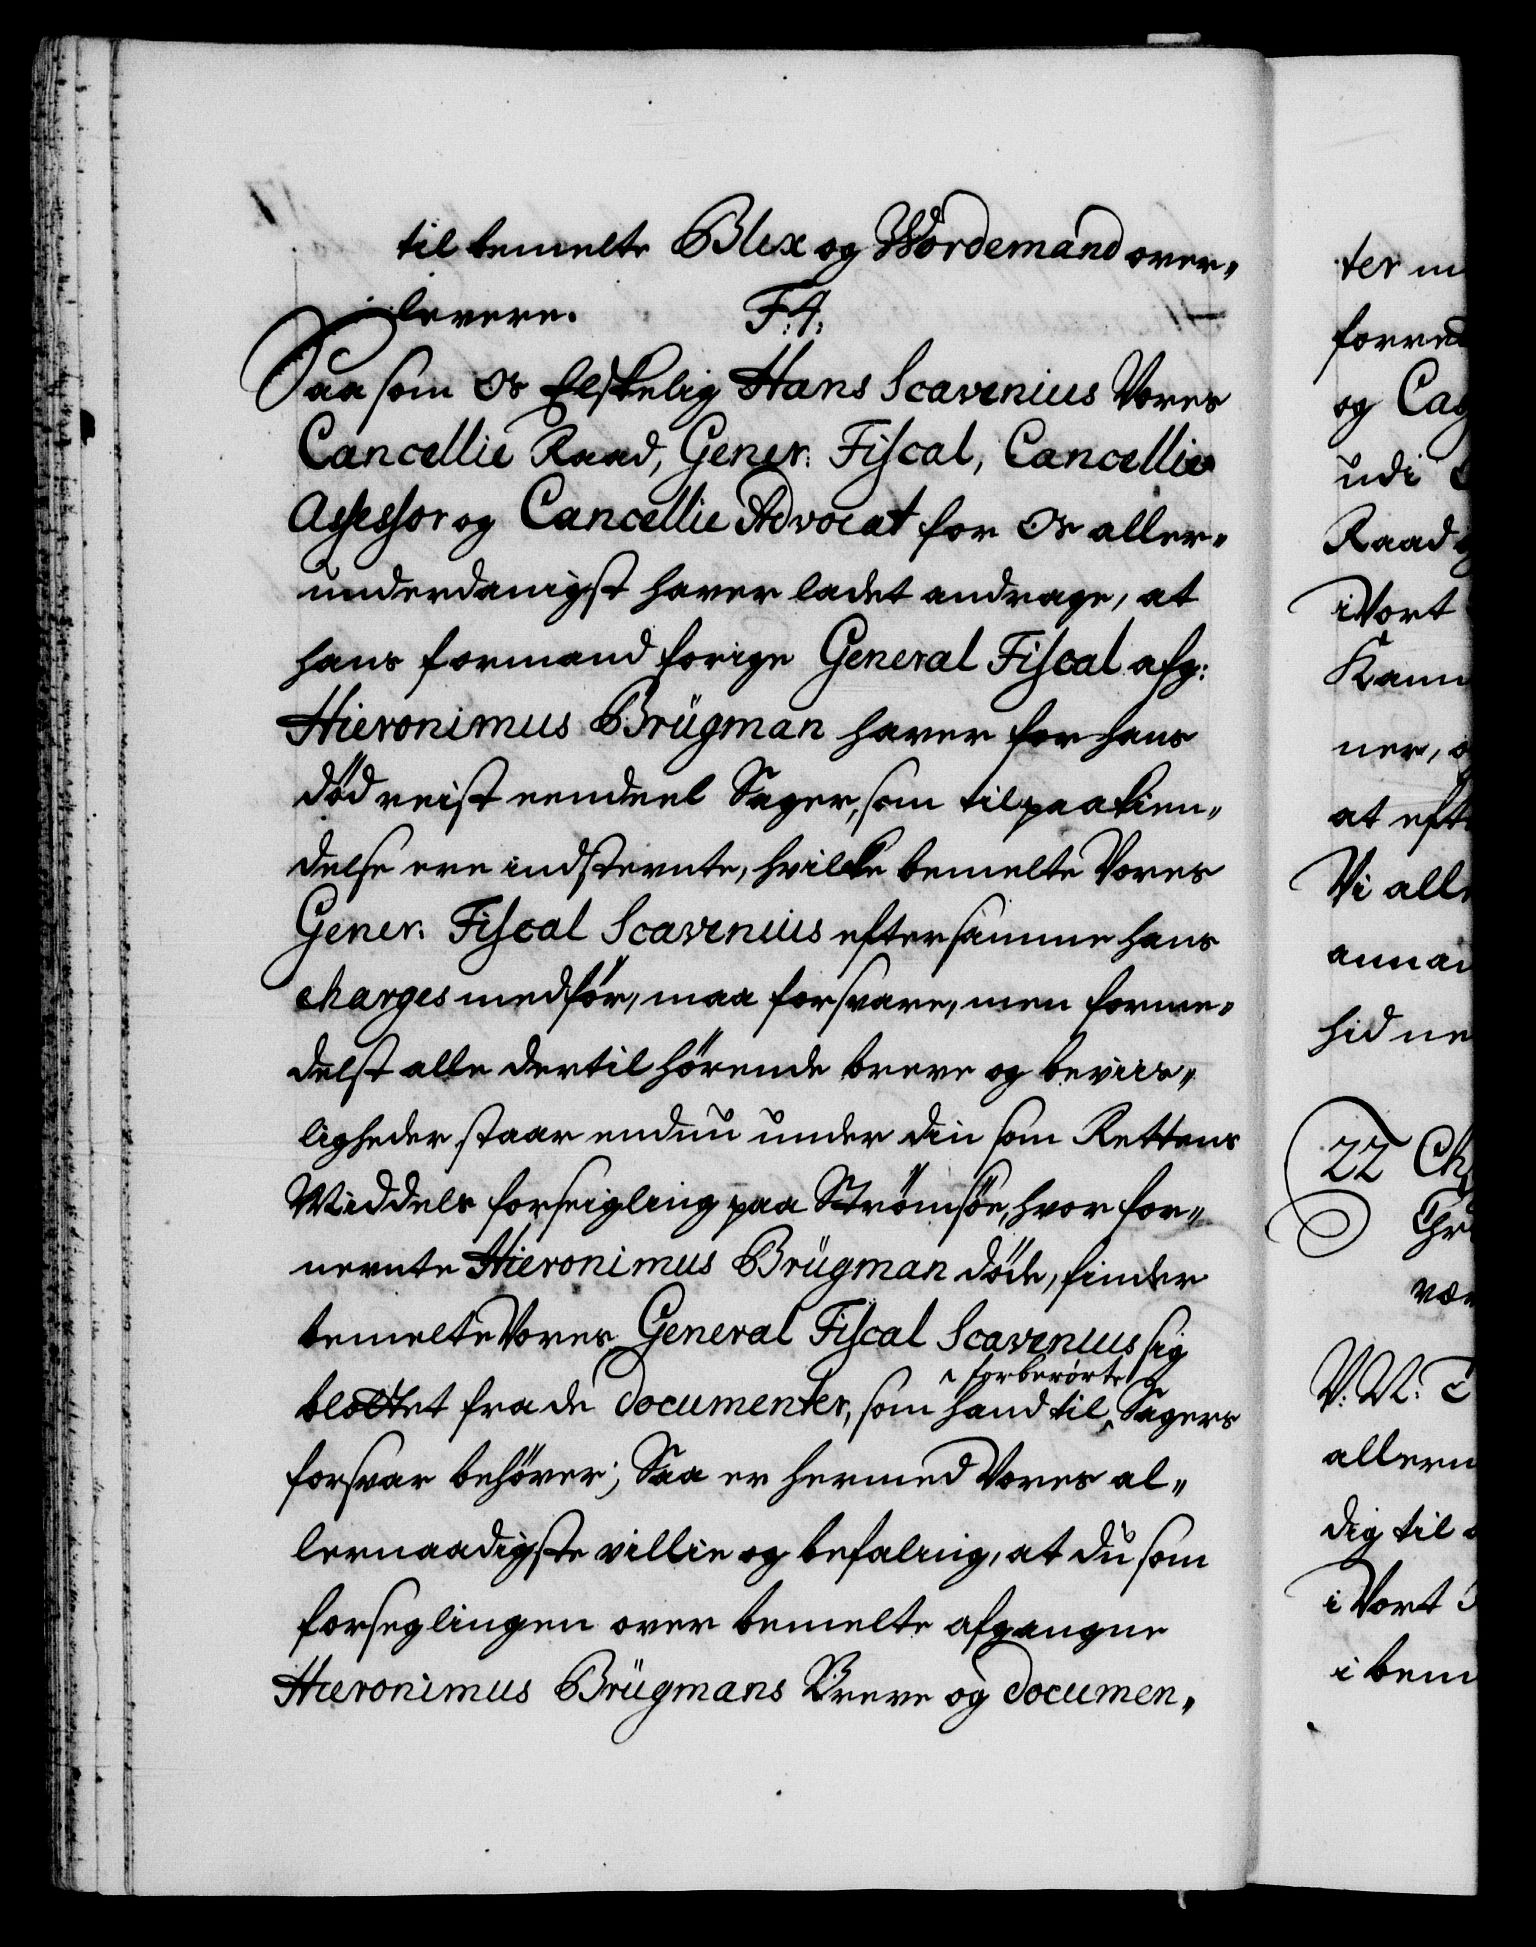 til bemelte Blix og Wordemand over„
levere. F: 4:
Saasom Os Elskelig Hans Scavenius Vores
Cancellie Raad, Gener: Fiscal, Cancellie
Assessor og Cancellie Advocat for Os aller„
underdanigst haver ladet andrage, at
hans formand forige General Fiscal afg:
Hieronimus Brügman haver for hans
död reist eendeel Sager, som til paakien„
delse ere indstevnte, hvilke bemelte Vores
Gener: Fiscal Scavenius efter samme hans
charges medför, maa forsvare, men forme„
delst alle dertil hörende breve og beviis„
ligheder staar endnu under din som Rettens
Middels forseigling paa Strömsöe, hvor for„
nevnte Hieronimus Brügman döde, finder
bemelte Vores General Fiscal Scavenius sig
blottet fra de documenter, som hand til forberörte Sagers
forsvar behöver; Saa er hermed Vores al„
lernaadigste villie og befaling, at du som
forseglingen over bemelte afgangne
Hieronimus Brügmans Breve og documen„
ter
og
udi
Raad
i Vort
ner,
at
Vi
hid
22
V: M:
dig til
i Vort
i